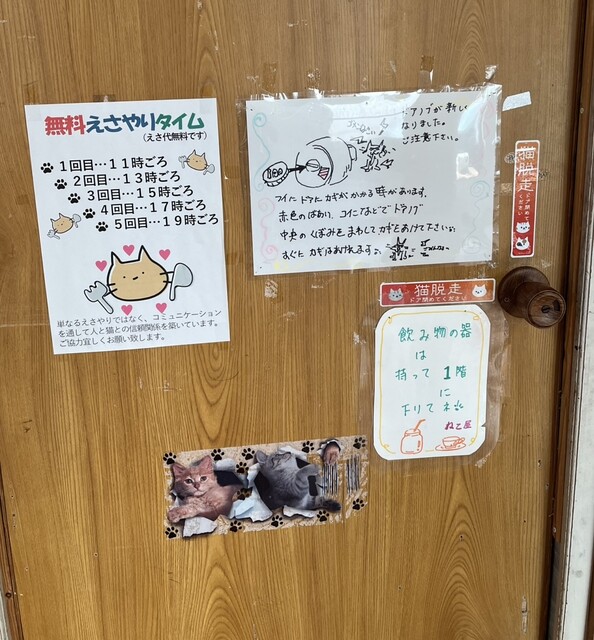 無料えさやりタイム
（えさ代無料です）
1回目…11時ごろ
2回目…13時ごろ
3回目…15時ごろ
4回目…17時ごろ
5回目…19時ごろ
単なるえさやりではなく、コミュニケーション
を通して人と猫との信頼関係を築いています。
ご協力宜しくお願い致します。
ドアノブが新しく
なりました。
ご注意下さい。
赤色の
コインなどでドアノブ
中央のくぼみをまわしてカギをあけて下さい。
すぐにカギはあけれます。
猫脱走
ドア閉めてください
猫脱走
ドア閉めてください
飲み物の器
は
持って1階
に
下りてネ
ねこ屋